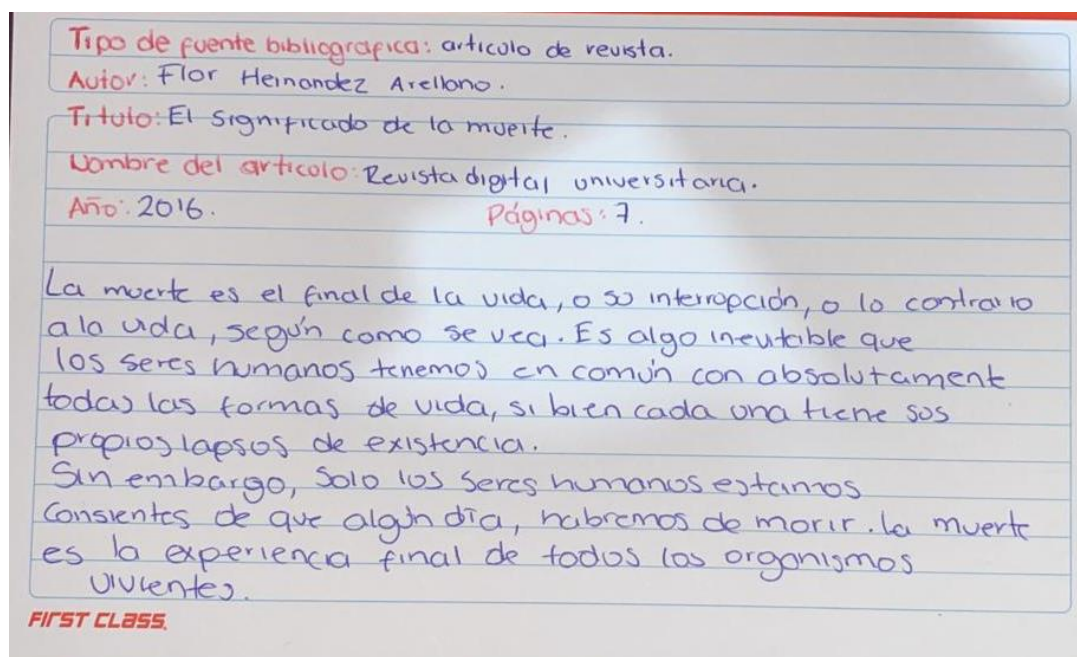 Tipo de fuente bibliografica: articulo de revista.
Autor: Flor Hernandez Arellano.
Titulo: El significado de la muerte.
Nombre del articulo: Revista digital universitaria.
Año: 2016. Páginas: 7.
La muerte es el final de la vida, o su interrupción, o lo contrario
a la vida, según como se vea. Es algo inevitable que
los seres humanos tenemos en común con absolutament
todas las formas de vida, si bien cada una tiene sus
propios lapsos de existencia.
Sin embargo, Solo los seres humanos estamos
Consientes de que algún día, habremos de morir. la muerte
es la experiencia final de todos los organismos
vivientes.
FIRST CLASS.